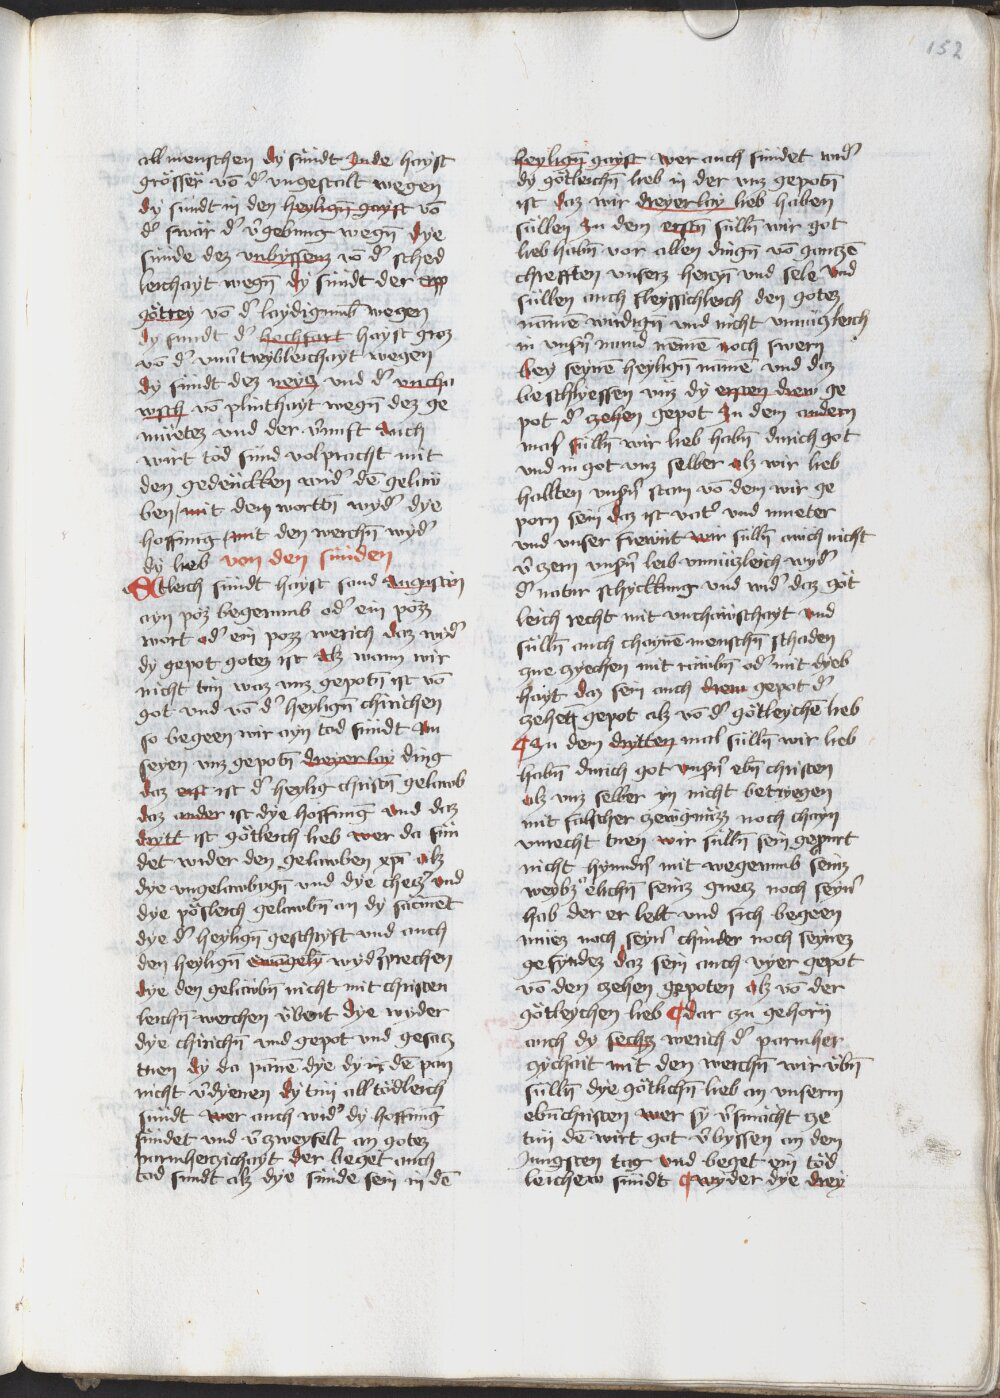 152
all menschen dy sündt Jude hayst
grösser vō d' vngestalt wegen
dy sündt in den heyligñ gayst vō
d' swär d' v̄gebung wegñ dye
sünde dez vnbyssenz vō d' sched
leichayt wegñ dy sündt der app
götrey vō d' laydigumb wegen
dy sundt d' hochfart hayst groz
vō d' vnũtreybleichayt wegen
dy sündt dez neyd vnd d' vncha
wsch vō plinthayt wegñ dez ge
müetez vnd der v̄nuft Auch
wirt tod sünd volpracht mit
den gedenckken wid' dē gelaw
ben / mit den wortñ wyd' dye
hoffnug / mit den werchñ wyd'
dy lieb von den sünden
Atleich sündt hayst sand Augustin
ayn pöz begerumb od' ein pözz
wort od' ein pozz werich daz wyd'
dy gepot gotez ist Alz wann wir
nicht tun waz vnz gepotñ ist vō
got vnd vō d' heyligñ chirichen
so begeen wir ayn tod sündt Nu
seyen vnz gepotñ dreyerlay ding
daz erst ist d' heylig christñ gelawb
daz ander ist dye hoffnūg vnd daz
dritt ist götleich lieb wer da sün
det wider den gelawben xpi alz
dye vngelawbygñ vnd dye checz' vnd
dye pösleich gelawbñ an dy sacmēt
dye d' heyligñ geschrift vnd auch
den heyligñ ewāgely wyd'sprechen
dye den gelawbñ nicht mit christen
leichñ werchen v̈bent dye wyder
dye chirichñ vnd gepot vnd gesacz
tuen dy da pānē dye dy iz dē pan
nicht v̄dyenen dy tun all tödleich
sündt wer auch wid' dy hoffnūg
sündet vnd v̄zweyfelt an gotez
parmherczichayt der beget auch
tod sundt alz dye sünde sein in dē
heyligñ gayst wer auch sündet wid'
dy götleichñ lieb in der vnz gepotñ
ist daz wir dreyerlay lieb haben
süllen Zu dem erstñ sülln wir got
lieb habñ vor allen dingñ vō gantzē
chrefften vnserz herczñ vnd sele vnd
süllen auch fleyssichleich den gotez
nāmē wirdigñ vnd nicht vnnüczleich
in vnsñ mund nemē noch swern
bey seynē heyligñ namē vnd daz
beschlyessen vnz dy ersten drew ge
pot d' zehen gepot Zu dem andern
mal sülln wir lieb habñ durich got
vnd in got vnz selber alz wir lieb
hallten vnsñ stam vō dem wir ge
porn sein daz ist vat' vnd mueter
vnd vnser frewnt wir sülln auch nicht
v̄czern vnsñ leib vnnüczleich wyd'
d' natur schyckung vnd wid' daz göt
leich recht mit vnchawschayt vnd
sülln auch chaynē menschñ schaden
zue zyechen mit rawbñ od' mit dyeb
hayt daz sein auch drew gepot d'
zehen gepot alz vō d' götleychē lieb
Zu dem dritten mal sülln wir lieb
habñ durich got vnsñ ebñ christen
alz vnz selber yn nicht betryegen
mit falscher zewgnüzz noch chayn
vnrecht tuen wir sülln sein gepurt
nicht hyndñ mit wegerumb seinz
weybz elichñ seinz guetz noch seyñ
hab der er lebt vnd sich begeen
müez noch seyñ chinder noch seynez
gesyndez daz sein auch vyer gepot
vō den zehen gepoten alz vō der
götleychen lieb dar zu gehörn
auch dy sechz werich d' parmher
zychait mit den werchñ wir v̈bñ
sülln dye götlichñ lieb an vnsern
ebñchristen wer sy v̄smächt ze
tun dē wirt got v̄byssen an dem
Jungsten tag vnd beget ein töd
leichew sündt wyder dye drey